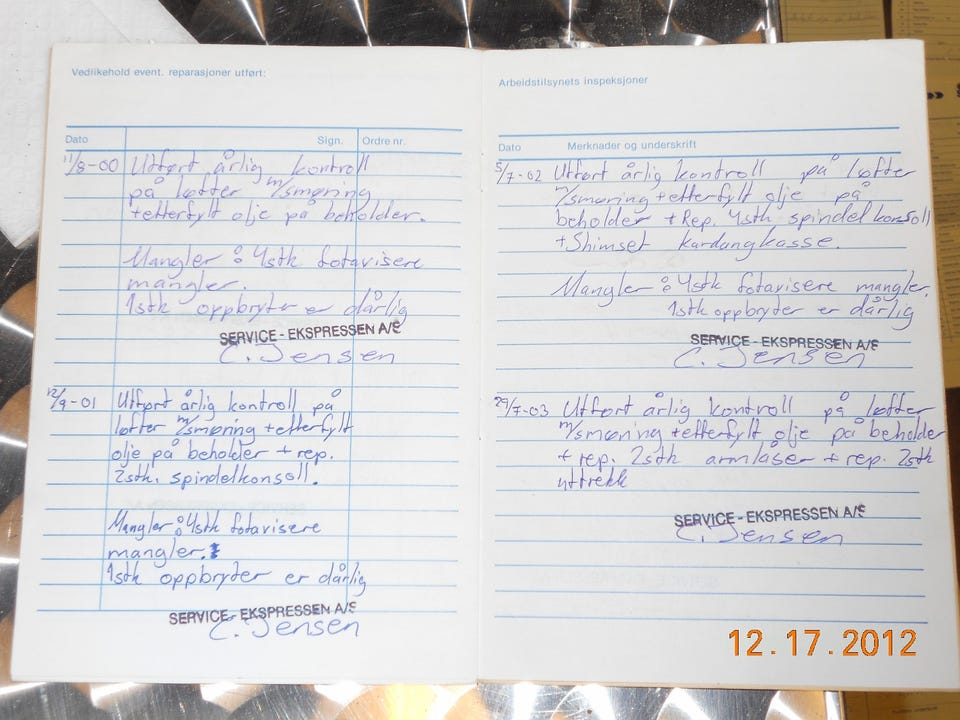 Vedlikehold event. reparasjoner utført:
Dato Sign. Ordre nr.
11/8-00 Utført årlig kontroll
på løfter m/smøring
+etterfylt olje på beholder.
Mangler: 4stk fotavisere
mangler.
1stk oppbryter er dårlig
SERVICE - EKSPRESSEN A/S
C. Jensen
12/9-01 Utført årlig kontroll på
løfter m/smøring +etterfylt
olje på beholder + rep.
2stk. spindelkonsoll.
Mangler: 4stk fotavisere
mangler.
1stk oppbryter er dårlig
SERVICE - EKSPRESSEN A/S
C. Jensen
Arbeidstilsynets inspeksjoner
Dato Merknader og underskrift
5/7-02 Utført årlig kontroll på løfter
m/smøring +etterfylt olje på
beholder + Rep. 4stk spindelkonsoll
+Shimset kardangkasse.
Mangler: 4stk fotavisere mangler.
1stk oppbryter er dårlig
SERVICE - EKSPRESSEN A/S
C. Jensen
29/7-03 Utført årlig kontroll på løfter
m/smøring +etterfylt olje på beholder
+ rep. 2stk armlåser + rep. 2stk
uttrekk
SERVICE - EKSPRESSEN A/S
C. Jensen
12.17.2012